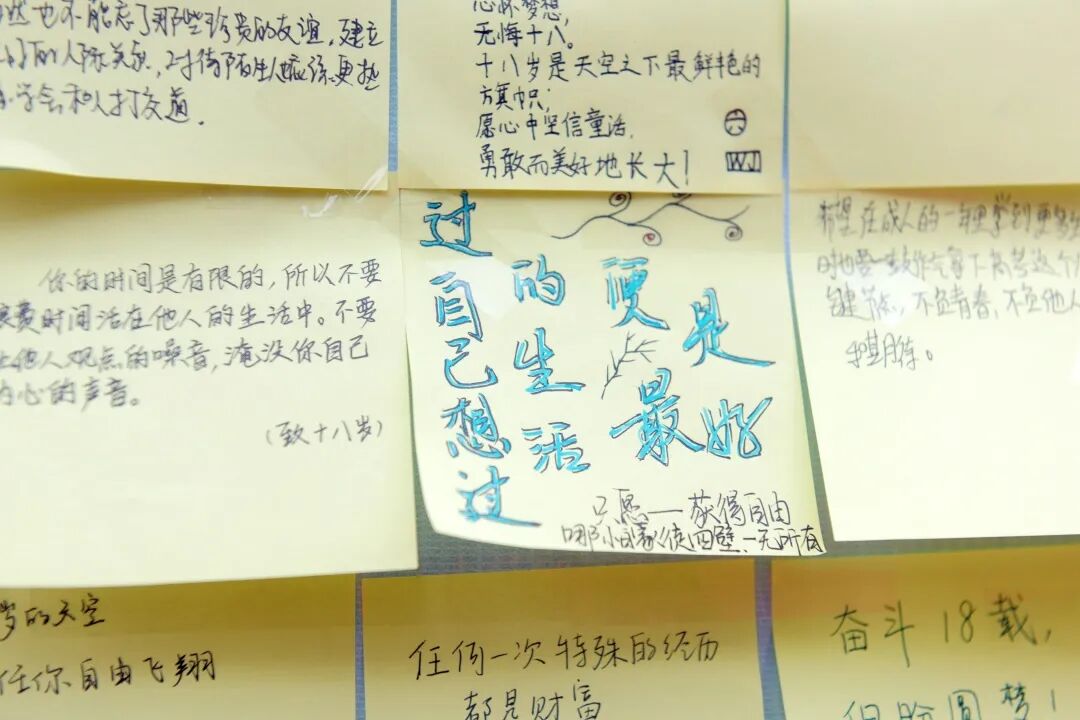 然也不能忘了那些珍贵的友谊,建立
好的人际关系,对待陌生人应该更热
学会和人打交道.
心怀梦想,
无悔十八。
十八岁是天空之下最鲜艳的
旗帜;
愿心中坚信童话,
勇敢而美好地长大!
六
WJ
你的时间是有限的,所以不要
浪费时间活在他人的生活中。不要
让他人观点的噪音,淹没你自己
内心的声音。
(致十八岁)
过自己想过
的生活
便是
最好
只愿——获得自由
哪怕家徒四壁、一无所有
希望在成人的一年里学到更多
时也要
键节点,不负青春,不负他人
和期待。
岁的天空
任你自由飞翔
任何一次特殊的经历
都是财富
奋斗18载,
圆梦!